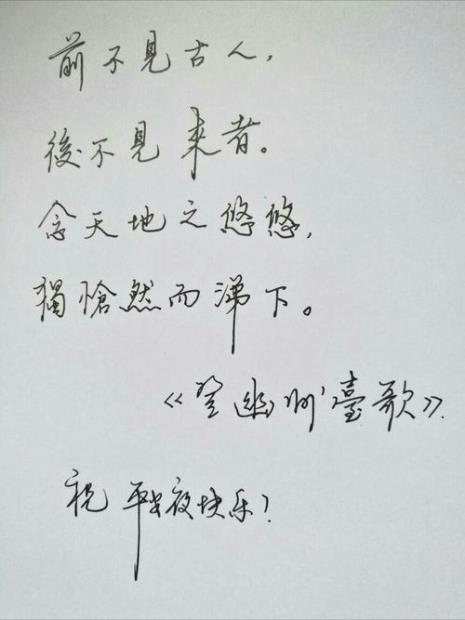 前不見古人，
後不見来者。
念天地之悠悠，
獨愴然而涕下。
《登幽州臺歌》
祝平安夜快乐！